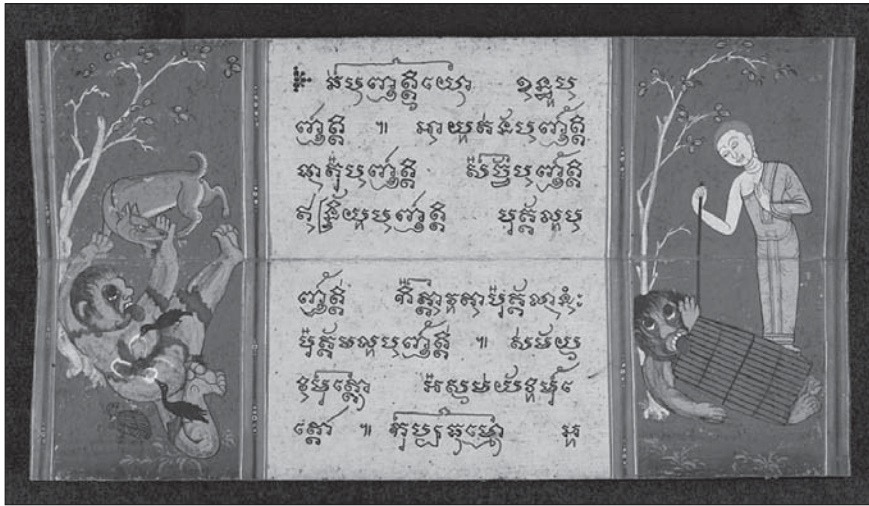 ឆបញ្ញត្តិយោ ខន្ធប
ញ្ញត្តិ ៕ អាយតនបញ្ញត្តិ
ធាតុបញ្ញត្តិ សច្ចបញ្ញត្តិ
ឥន្ទ្រិយបញ្ញត្តិ បុគ្គលប
ញ្ញត្តិ កិត្តាវតាបុគ្គលានំ
បុគ្គលបញ្ញត្តិ ៕ សមយ
វិមុត្តោ អសមយវិមុ
ត្តោ ៕ កុប្បធម្មោ អ